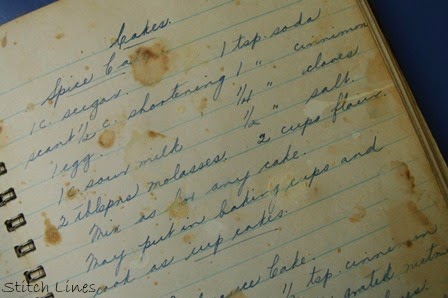 Cakes.
Spice Ca
1 c. sugar. 1 tsp. soda
scant ½ c. shortening 1 " cinnimon
1 egg. ¼ " cloves
1 c. sour milk ½ " salt.
2 tblspns molasses. 2 cups flour.
Mix as for any cake.
May put in baking cups and
cook as cup cakes.
sauce Cake.
½ tsp. cinnimon
grated nutm
Stitch Lines